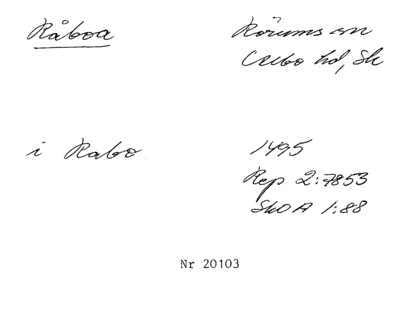 Råboa
Rörums sn
Albo hd, Sk
i Rabo
1495
Rep 2:7853
SkOA 1:88
Nr 20103